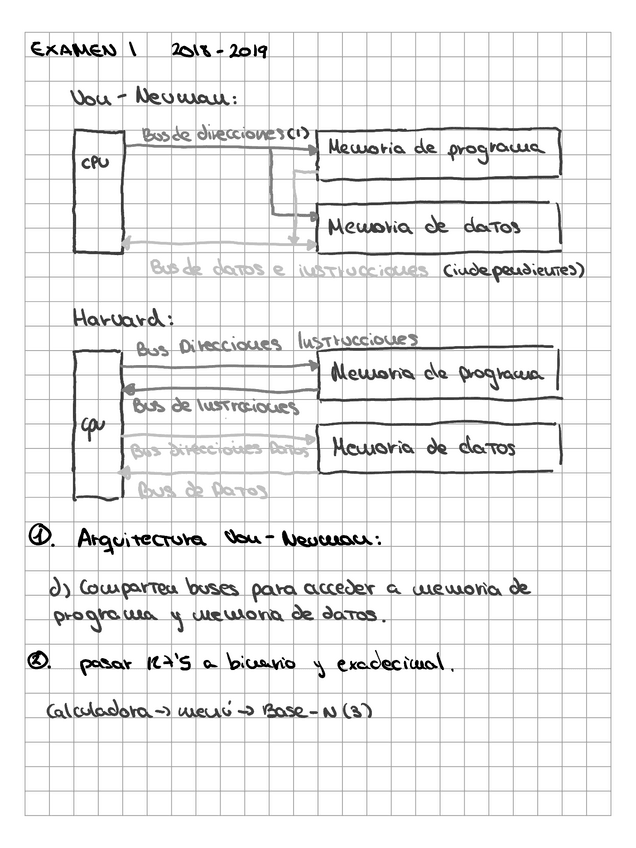 EXAMEN 1 2018-2019
Von-Neuman:
Bus de direcciones (1)
CPU
Memoria de programa
Memoria de datos
Bus de datos e instrucciones (independientes)
Harvard:
Bus Direcciones Instrucciones
Memoria de programa
Bus de Instrcciones
CPU
Memoria de datos
Bus direcciones Datos
Bus de Datos
①. Arquitectura Von-Neuman:
d) Comparten buses para acceder a memoria de
programa y memoria de datos.
②. pasar 127'5 a binario y exadecimal.
Calculadora → menú → Base-N (3)